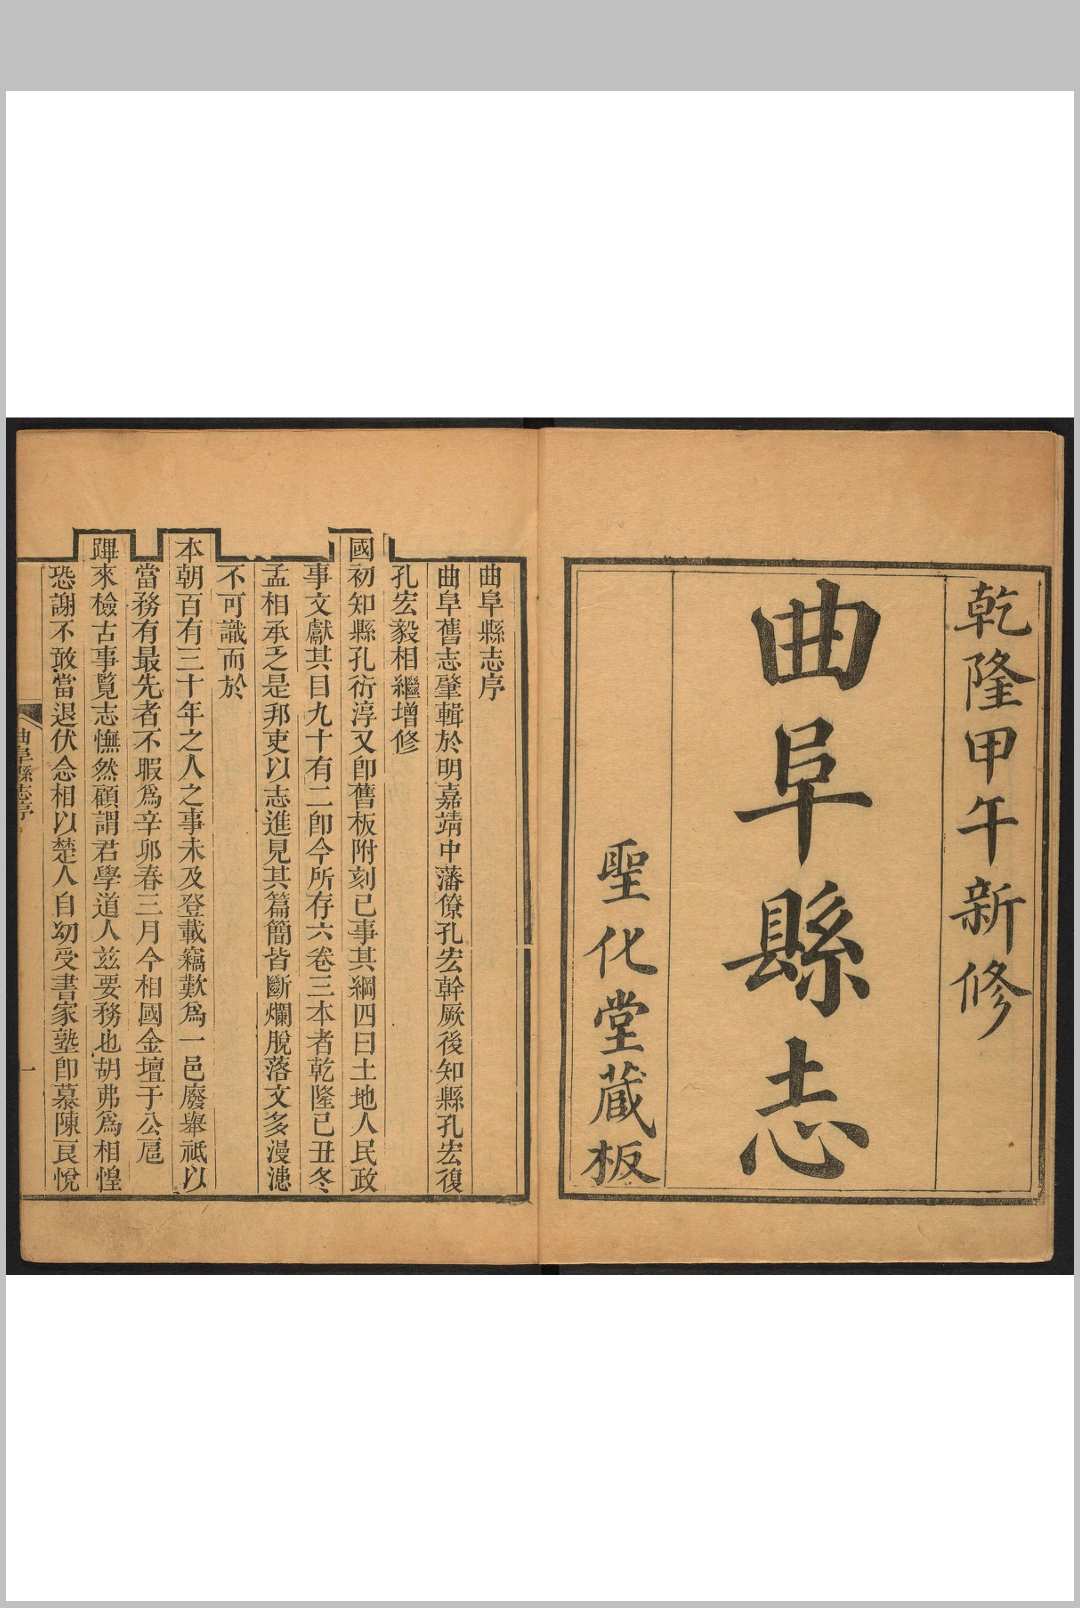 乾隆甲午新修
曲阜縣志
聖化堂蔵板
曲阜縣志序
曲阜舊志肇輯於明嘉靖中藩僚孔宏幹厥後知縣孔宏復
孔宏毅相繼增修
國初知縣孔衍淳又卽舊板附刻已事其綱四曰土地人民政
事文獻其目九十有二卽今所存六卷三本者乾隆己丑冬
孟相承乏是邦吏以志進見其篇簡皆斷爛脫落文多漫漶
不可識而於
本朝百有三十年之人之事未及登載竊歎爲一邑廢舉祗以
當務有最先者不暇爲辛卯春三月今相國金壇于公扈
蹕來檢古事覧志憮然顧謂君學道人兹要務也胡弗爲相惶
恐謝不敢當退伏念相以楚人自幼受書家塾卽慕陳良悅
曲阜縣志序
一